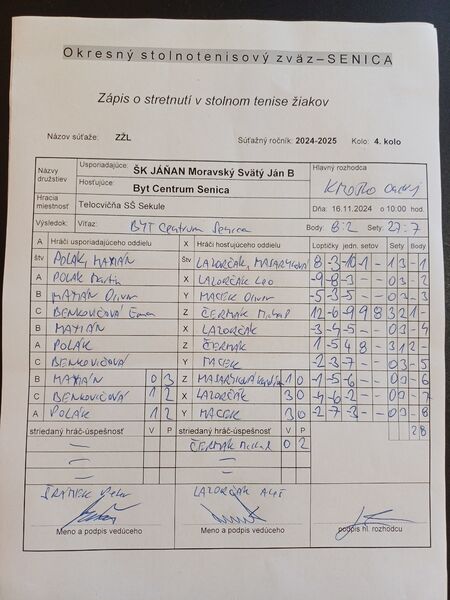 Okresný stolnotenisový zväz–SENICA
Zápis o stretnutí v stolnom tenise žiakov
Názov súťaže: ZŽL Súťažný ročník: 2024-2025 Kolo: 4. kolo
Názvy družstiev Usporiadajúce: ŠK JÁŇAN Moravský Svätý Ján B Hlavný rozhodca
Hosťujúce: Byt Centrum Senica
Hracia miestnosť Telocvičňa SŠ Sekule Dňa: 16.11.2024 o 10:00 hod.
Výsledok: Víťaz: BYT Centrum Senica Body: 8:2 Sety 27:7
A Hráči usporiadajúceho oddielu X Hráči hosťujúceho oddielu Loptičky jedn. setov Sety Body
štv POLÁK, MAXIÁN Štv LAZORČÁK, MASARYKOVÁ
A POLÁK Martin X LAZORČÁK Leo -9 8-3-- 03-2
B MAXIÁN Oliver Y MACEK Oliver -5-3-5-- 03-3
C BENKOVIČOVÁ Z ČERMÁK Michal 12-6-9 9 8 3 2 1-
B MAXIÁN X LAZORČÁK 03-4
A POLÁK Z ČERMÁK 1-5 4 8 - 3 1 2-
C BENKOVIČOVÁ Y MACEK -2-3-7-- 03-5
B MAXIÁN 0 3 Z MASARYKOVÁ 1 0 -1-5-6-- 03-6
C BENKOVIČOVÁ 1 2 X LAZORČÁK 3 0 -4-6-2-- 03-7
A POLÁK 1 2 Y MACEK 3 0 -2-7-3-- 03-8
striedaný hráč-úspešnosť V P striedaný hráč-úspešnosť V P 2 8
ČERMÁK Michal 0 2
LAZORČÁK
Meno a podpis vedúceho Meno a podpis vedúceho podpis hl. rozhodcu